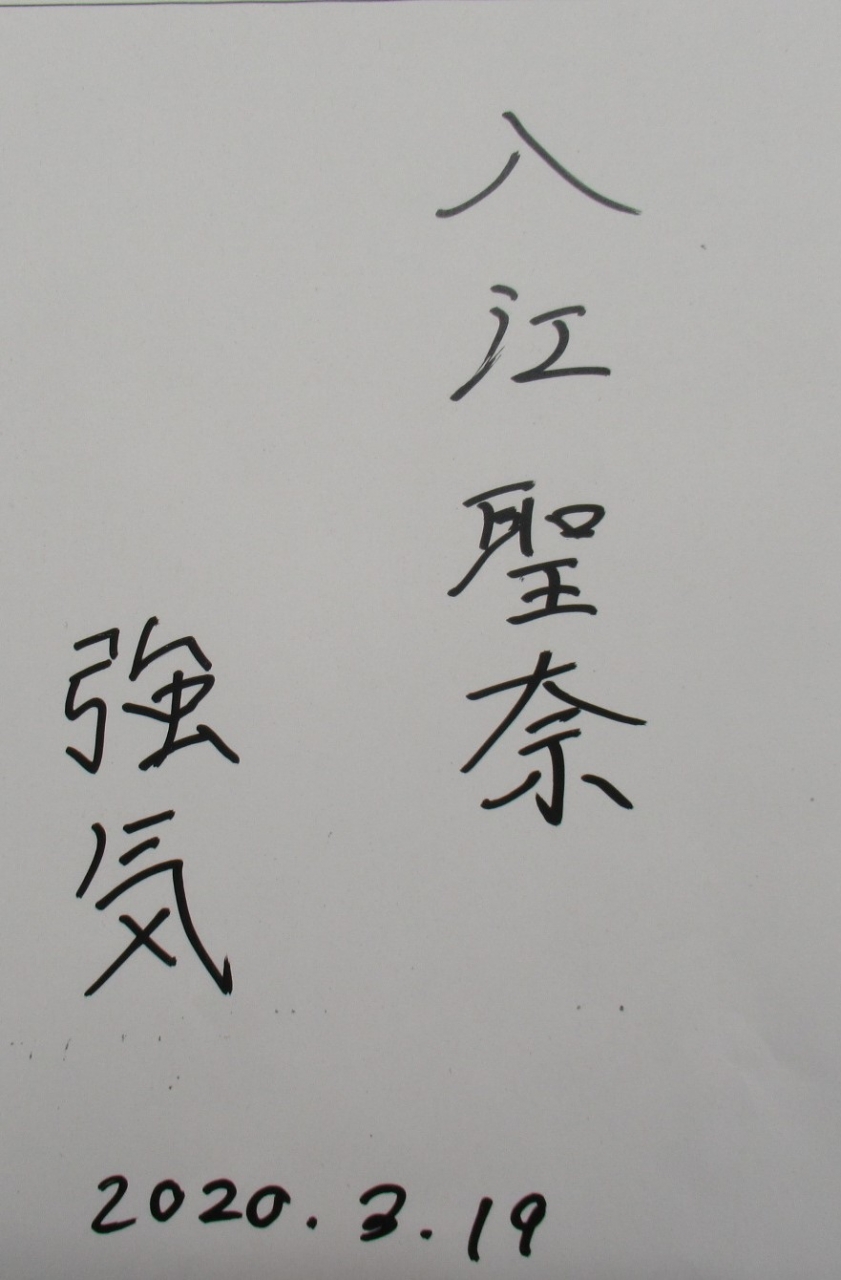 入江聖奈
強気
2020.3.19